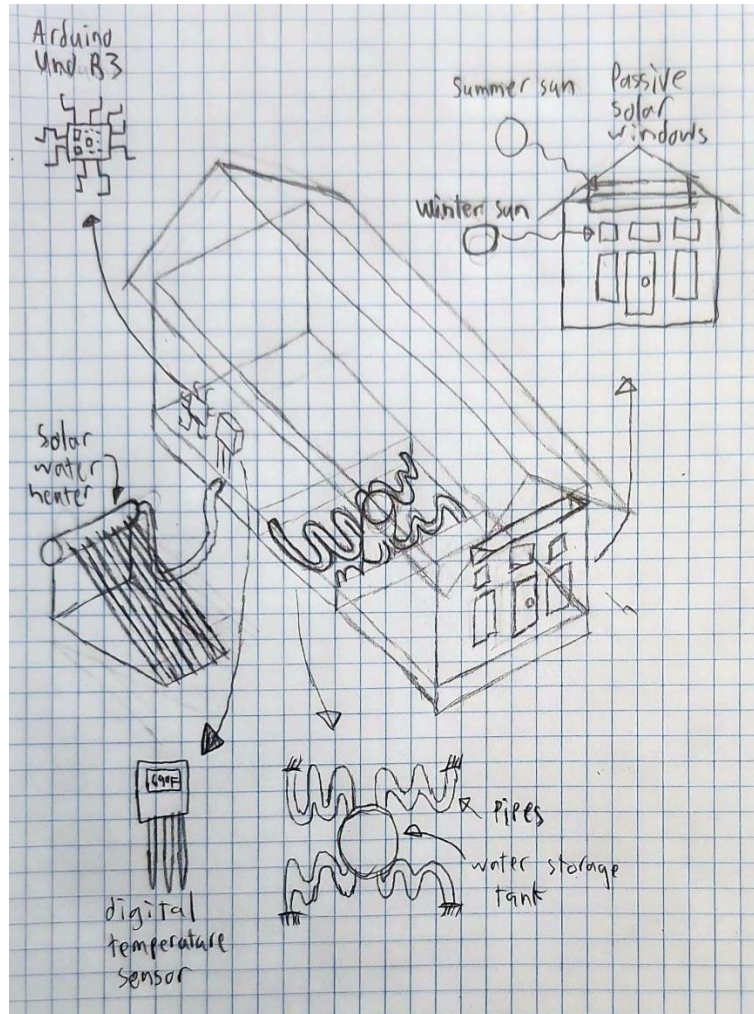 Arduino
Uno R3
Summer sun
Passive
solar
windows
Winter sun
Solar
water
heater
69°F
digital
temperature
sensor
Pipes
water storage
tank